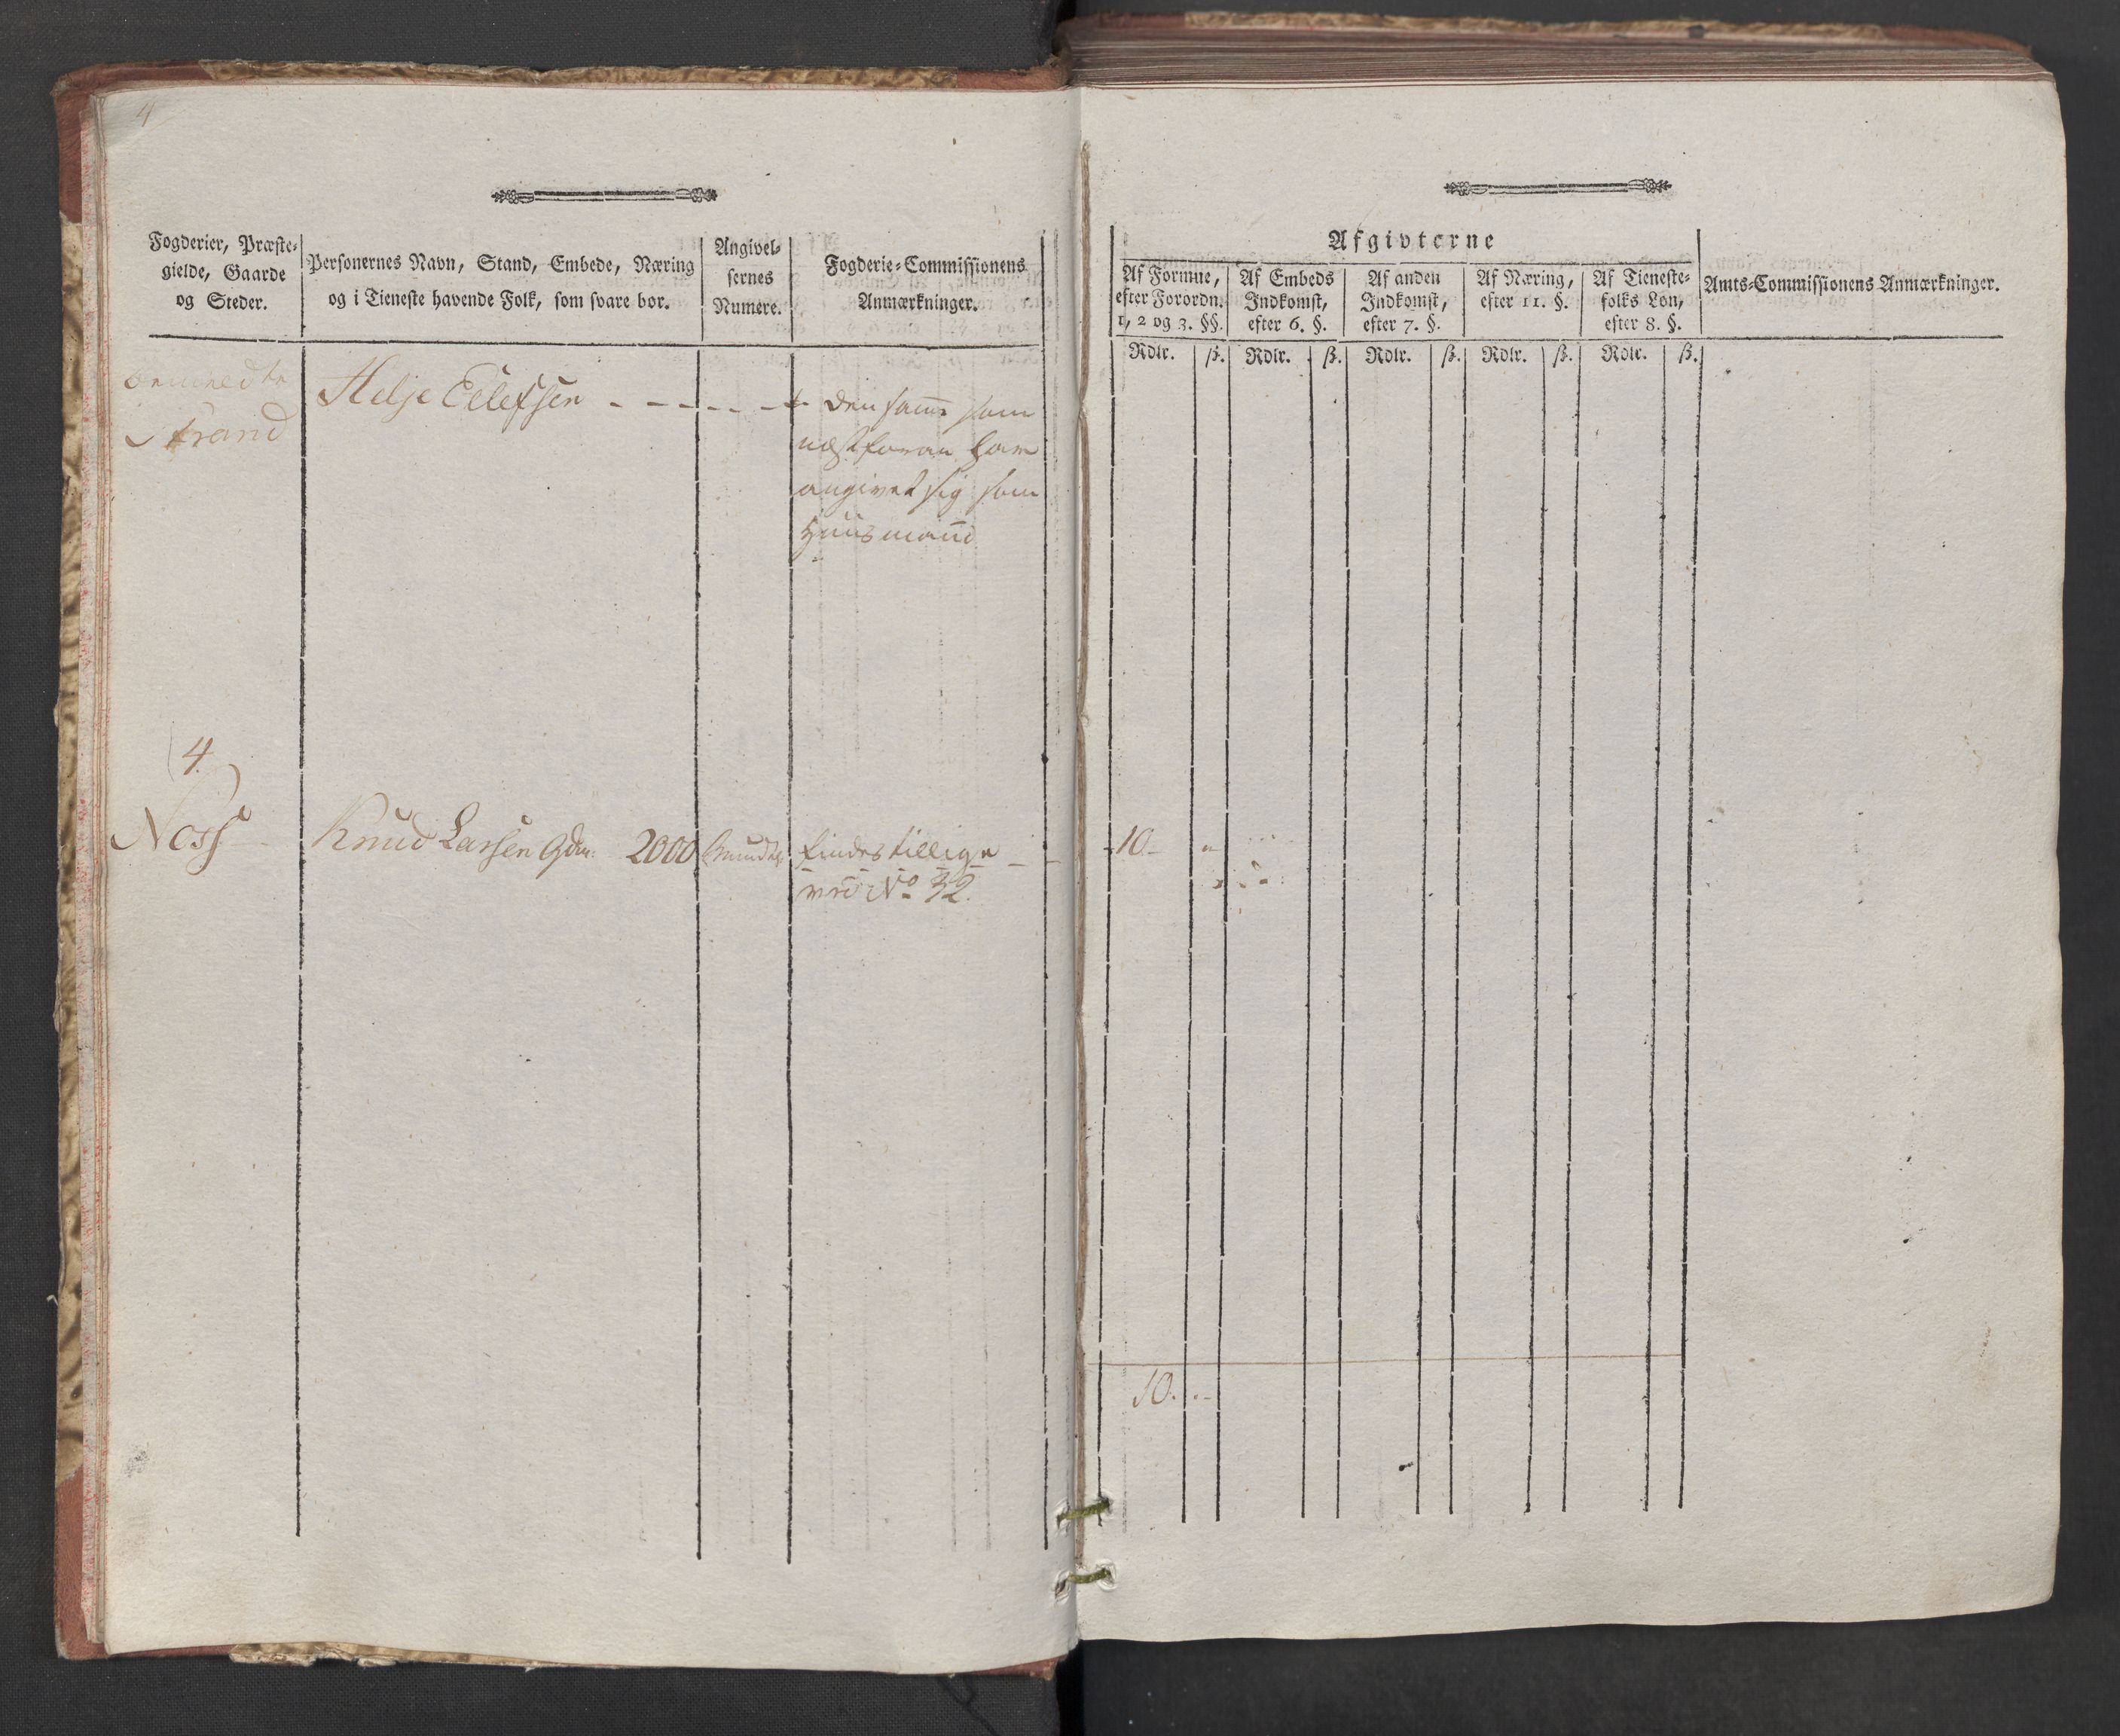 4
Fogderier, Præste-
gielde, Gaarde
og Steder.
Personernes Navn, Stand, Embede, Næring
og i Tieneste havende Folk, som svare bør.
Angivel-
sernes
Numere.
Fogderie-Commissionens
Anmærkninger.
Strand
Helje Eilefsen - - - - - -
den samme som
næstforan har
angivet sig som
Huusmand
4.
Ness
Knud Larsen Gdm. 2000
findes tillige
ved No 32.
Afgivterne
Af Formue,
efter Forordn.
1, 2 og 3. §§.
Af Embeds
Indkomst,
efter 6. §.
Af anden
Indkomst,
efter 7. §.
Af Næring,
efter 11. §.
Af Tieneste-
folks Løn,
efter 8. §.
Amts-Commissionens Anmærkninger.
Rdlr. ß. Rdlr. ß. Rdlr. ß. Rdlr. ß. Rdlr. ß.
10 - "
10. . -